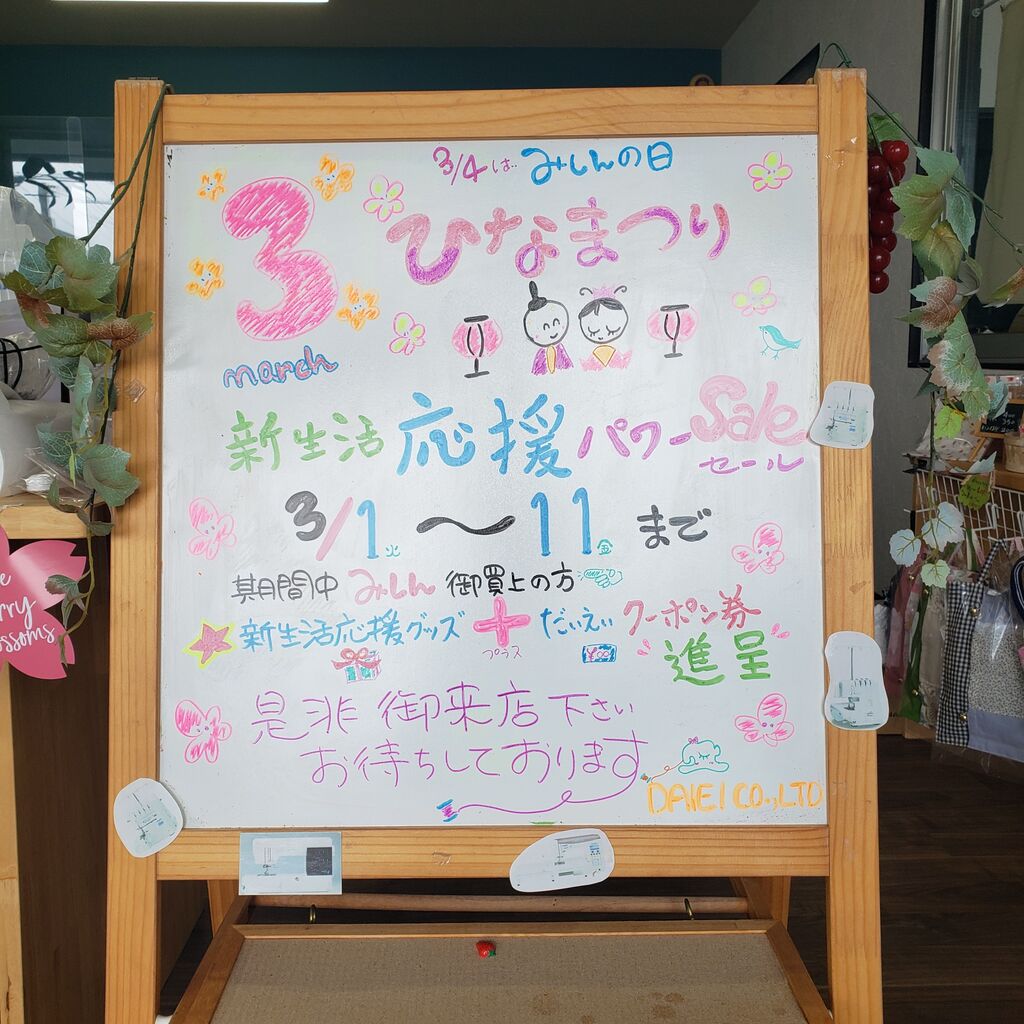 3/4は みしんの日
3 ひなまつり
march
新生活 応援 パワー Sale
セール
3/1火 ～ 11金 まで
期間中 みしん 御買上の方
新生活応援グッズ + だいえい クーポン券
プラス
進呈
是非 御来店下さい
お待ちしております
DAIEI CO.,LTD